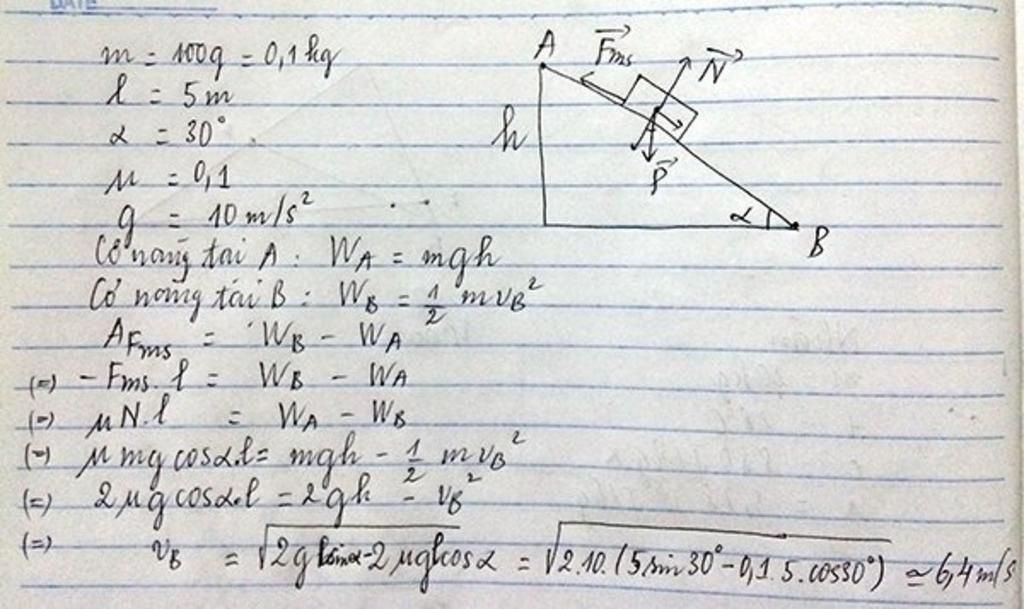 DATE
m = 100g = 0,1 kg
l = 5m
α = 30°
μ = 0,1
g = 10 m/s²
A
Fms
N
h
P
α
B
Cơ năng tại A : W_A = mgh
Cơ năng tại B : W_B = 1/2 m v_B²
A_Fms = W_B - W_A
(=) - Fms. l = W_B - W_A
(=) μN.l = W_A - W_B
(=) μmg cosα.l = mgh - 1/2 m v_B²
(=) 2μg cosα.l = 2gh - v_B²
(=) v_B = √2glsinα-2μglcosα = √2.10.(5sin30°-0,1.5.cos30°) ≃ 6,4 m/s